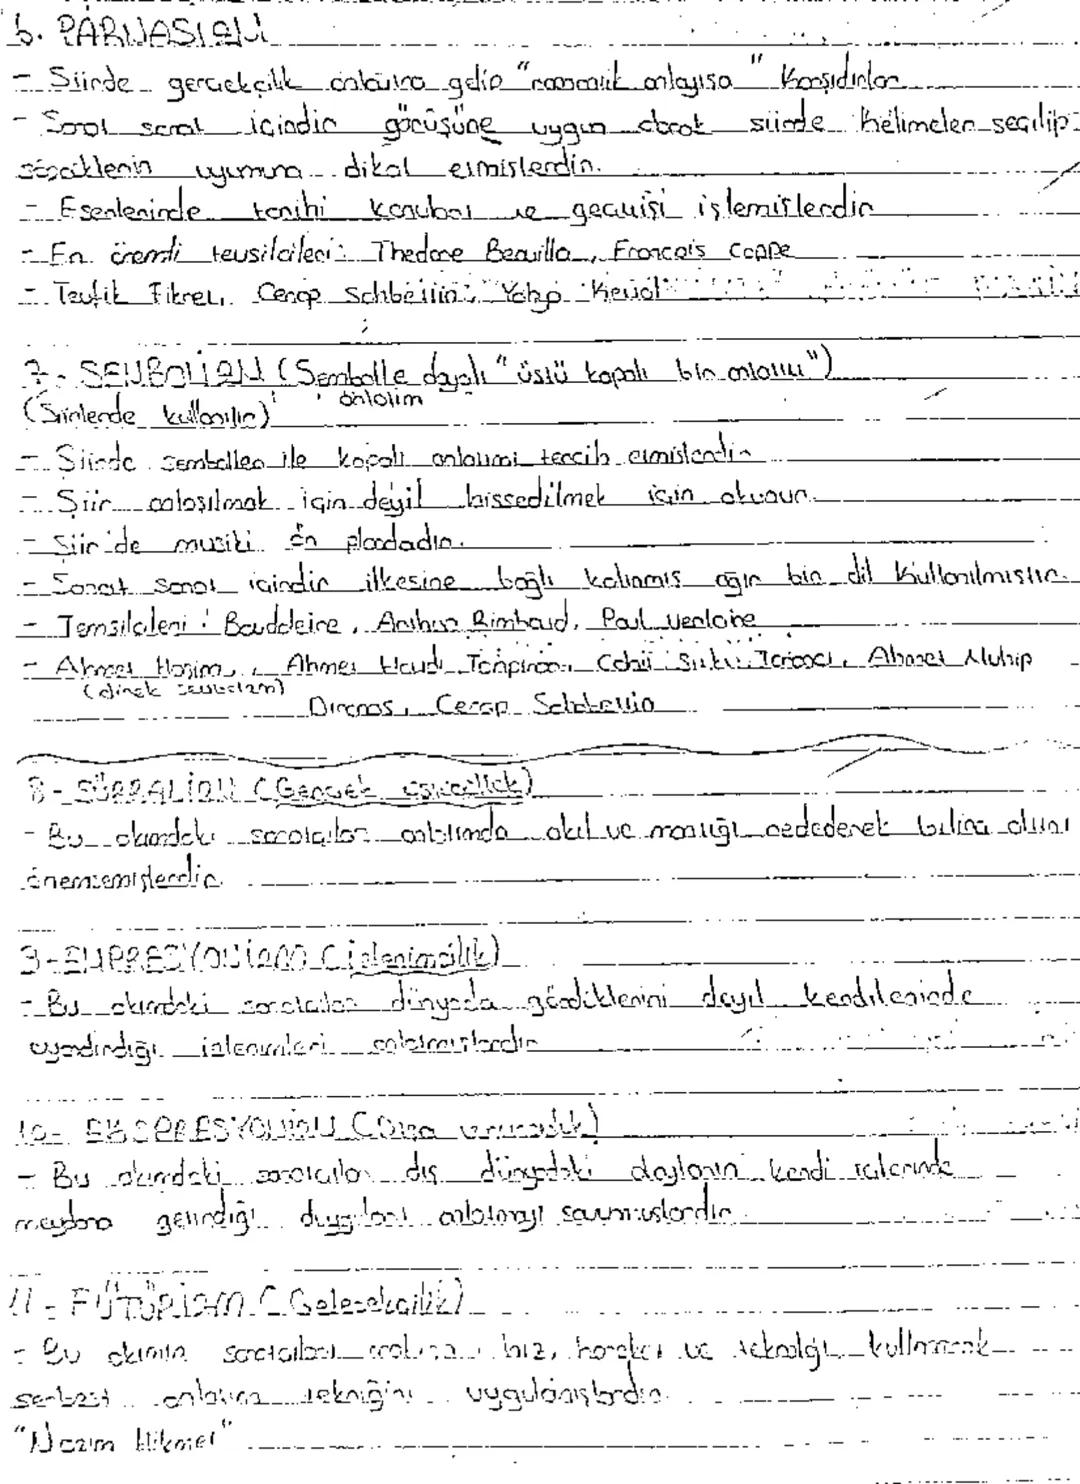 6. PARNASİZM
- Şiirde gerçekçilik anlamına gelip "romantik anlayışa" karşıdırlar
- Sanat sanat içindir görüşüne uygun olarak şiirde kelimeler seçilip
sözcüklerin uyumuna dikat etmişlerdir.
- Eserlerinde tarihi konuları ve geçmişi işlemişlerdir
- En önemli temsilcileri: Thedore Banvilla, Francois Coppe
- Tevfik Fikret, Cenap Şahbettin, Yahya Kemal
7 - SEMBOLİZM (Sembolle dayalı "üstü kapalı bir anlatım")
anlatım
(Şiirlerde kullanılır)
- Şiirde semboller ile kapalı anlatımı tercih etmişlerdir
- Şiir anlaşılmak için deyil hissedilmek için okunur.
- Şiir'de musiki ön plandadır.
- Sanat sanat içindir ilkesine bağlı kalınmış ağır bir dil kullanılmıştır.
- Temsilcileri: Bauddeire, Arthur Rimbaud, Paul Verlaine
- Ahmet Haşim, Ahmet Hamdi Tanpınar, Cahit Sıtkı Tarancı, Ahmet Muhip
(direk sembolizm)
Dıranas, Cenap Şahbettin
8 - SÜRRALİZM (Gerçek üstücülük)
- Bu akımdaki sanatçılar anlatımda akıl ve mantığı reddederek bilinç altını
önemsemişlerdir.
9 - EMPRESYONİZM (izlenimcilik)
- Bu akımdaki sanatçılar dünyada gördüklerini deyil kendilerinde
uyandırdığı izlenimleri anlatmışlardır
10 - EKSPRESYONİZM (Dışa vurumculuk)
- Bu akımdaki sanatçılar dış dünyadaki olayların kendi içlerinde
meydana getirdiği duyguları anlatmayı savunmuşlardır.
11 - FÜTÜRİZM (Gelecekçilik)
- Bu akımın sanatçıları hız, hareket ve teknoloji kullanarak
serbest anlatım tekniğini uygulamışlardır.
"Nazım Hikmet"